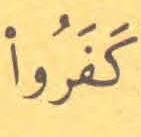 كَفَرُوا۟